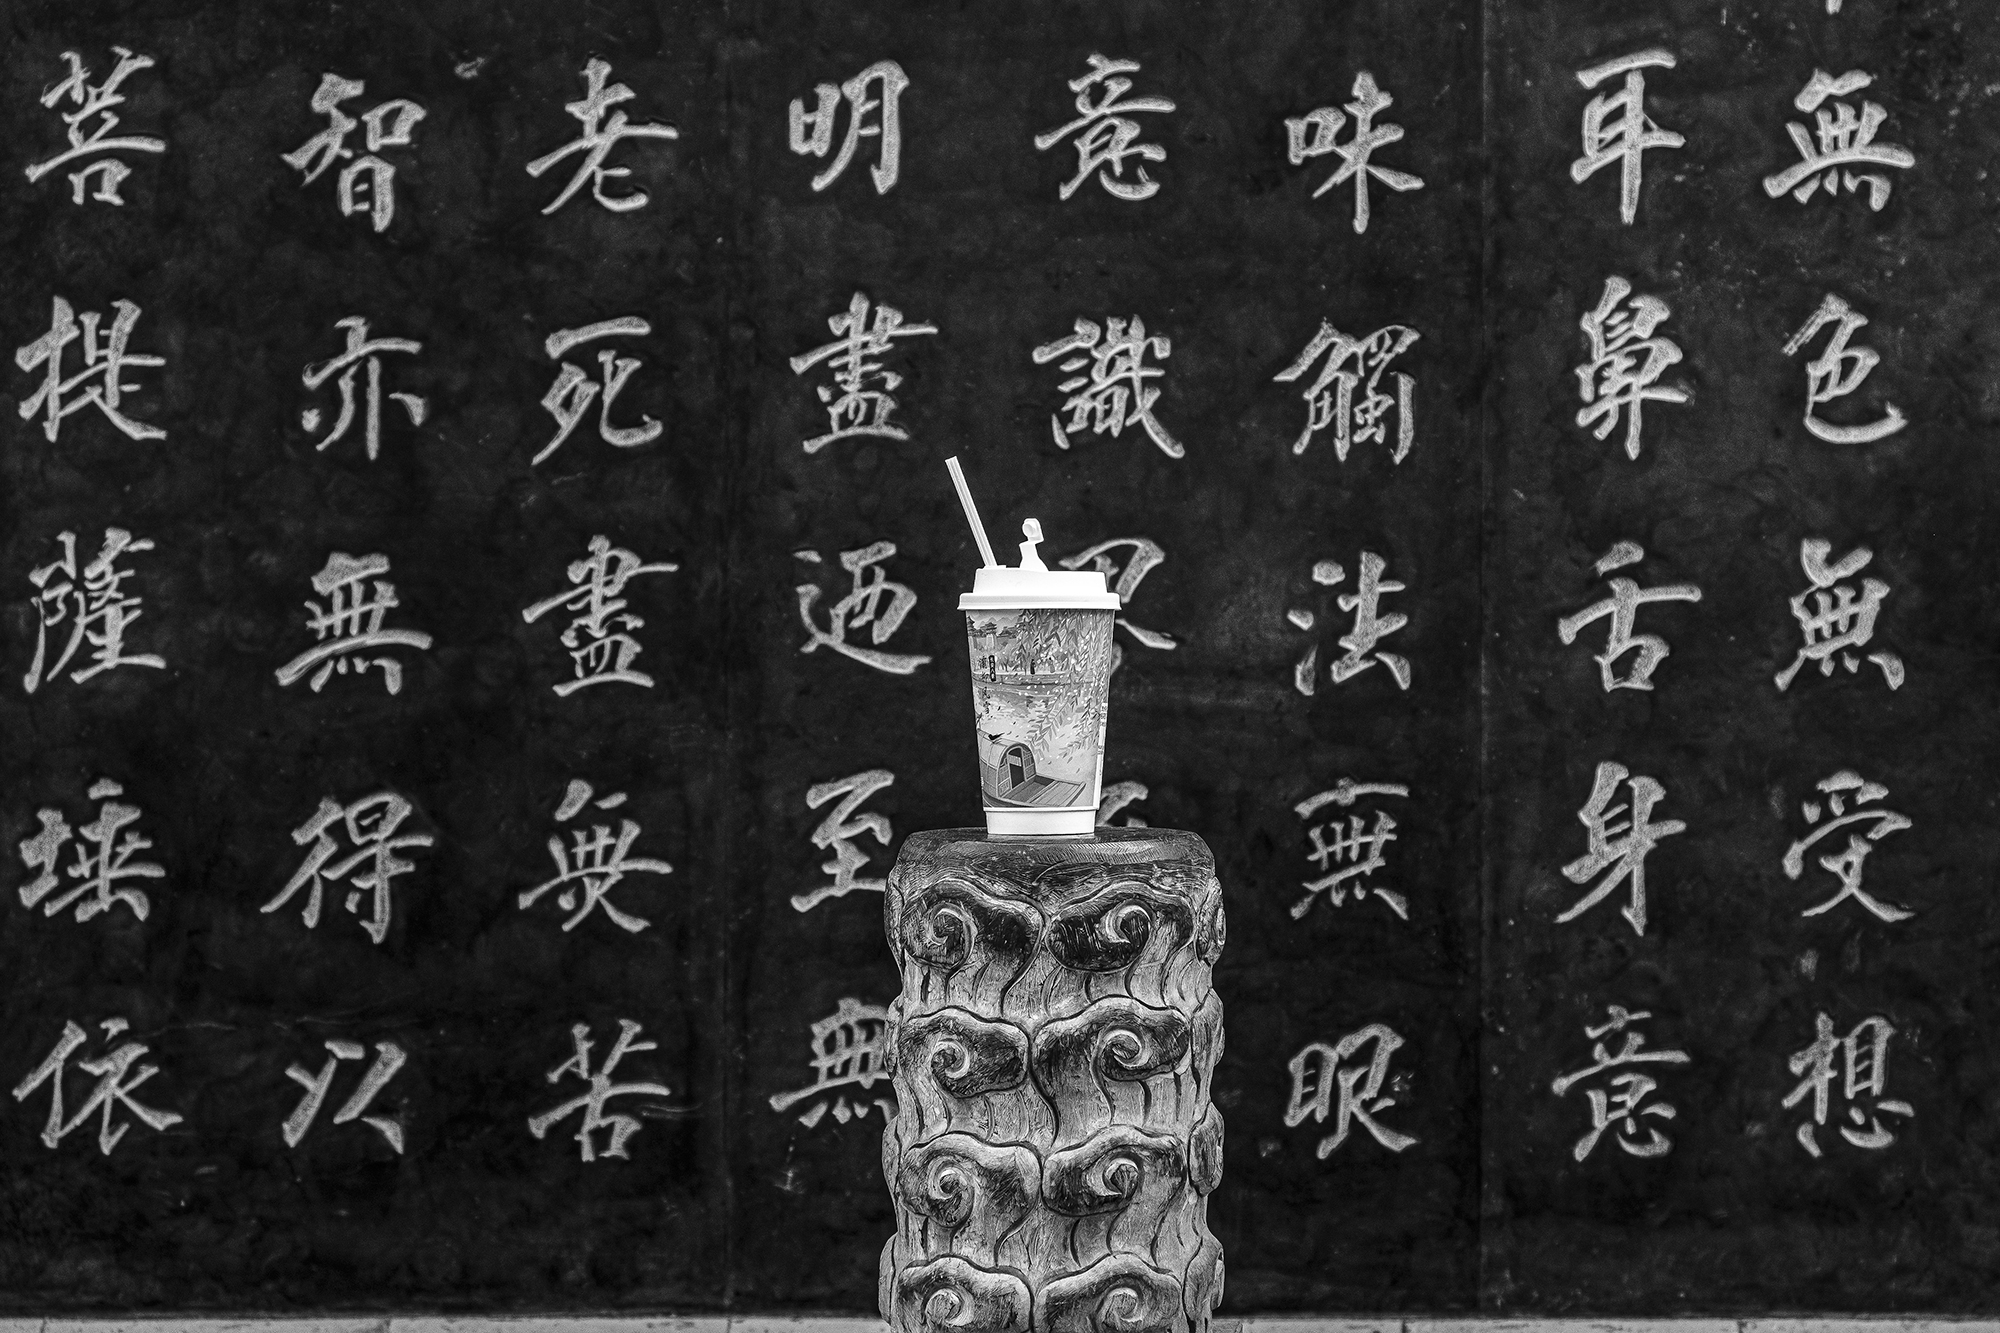 無色無受想
耳鼻舌身意
味觸法無眼
意識界
明盡迺至無
老死盡無苦
智亦無得以
菩提薩埵依